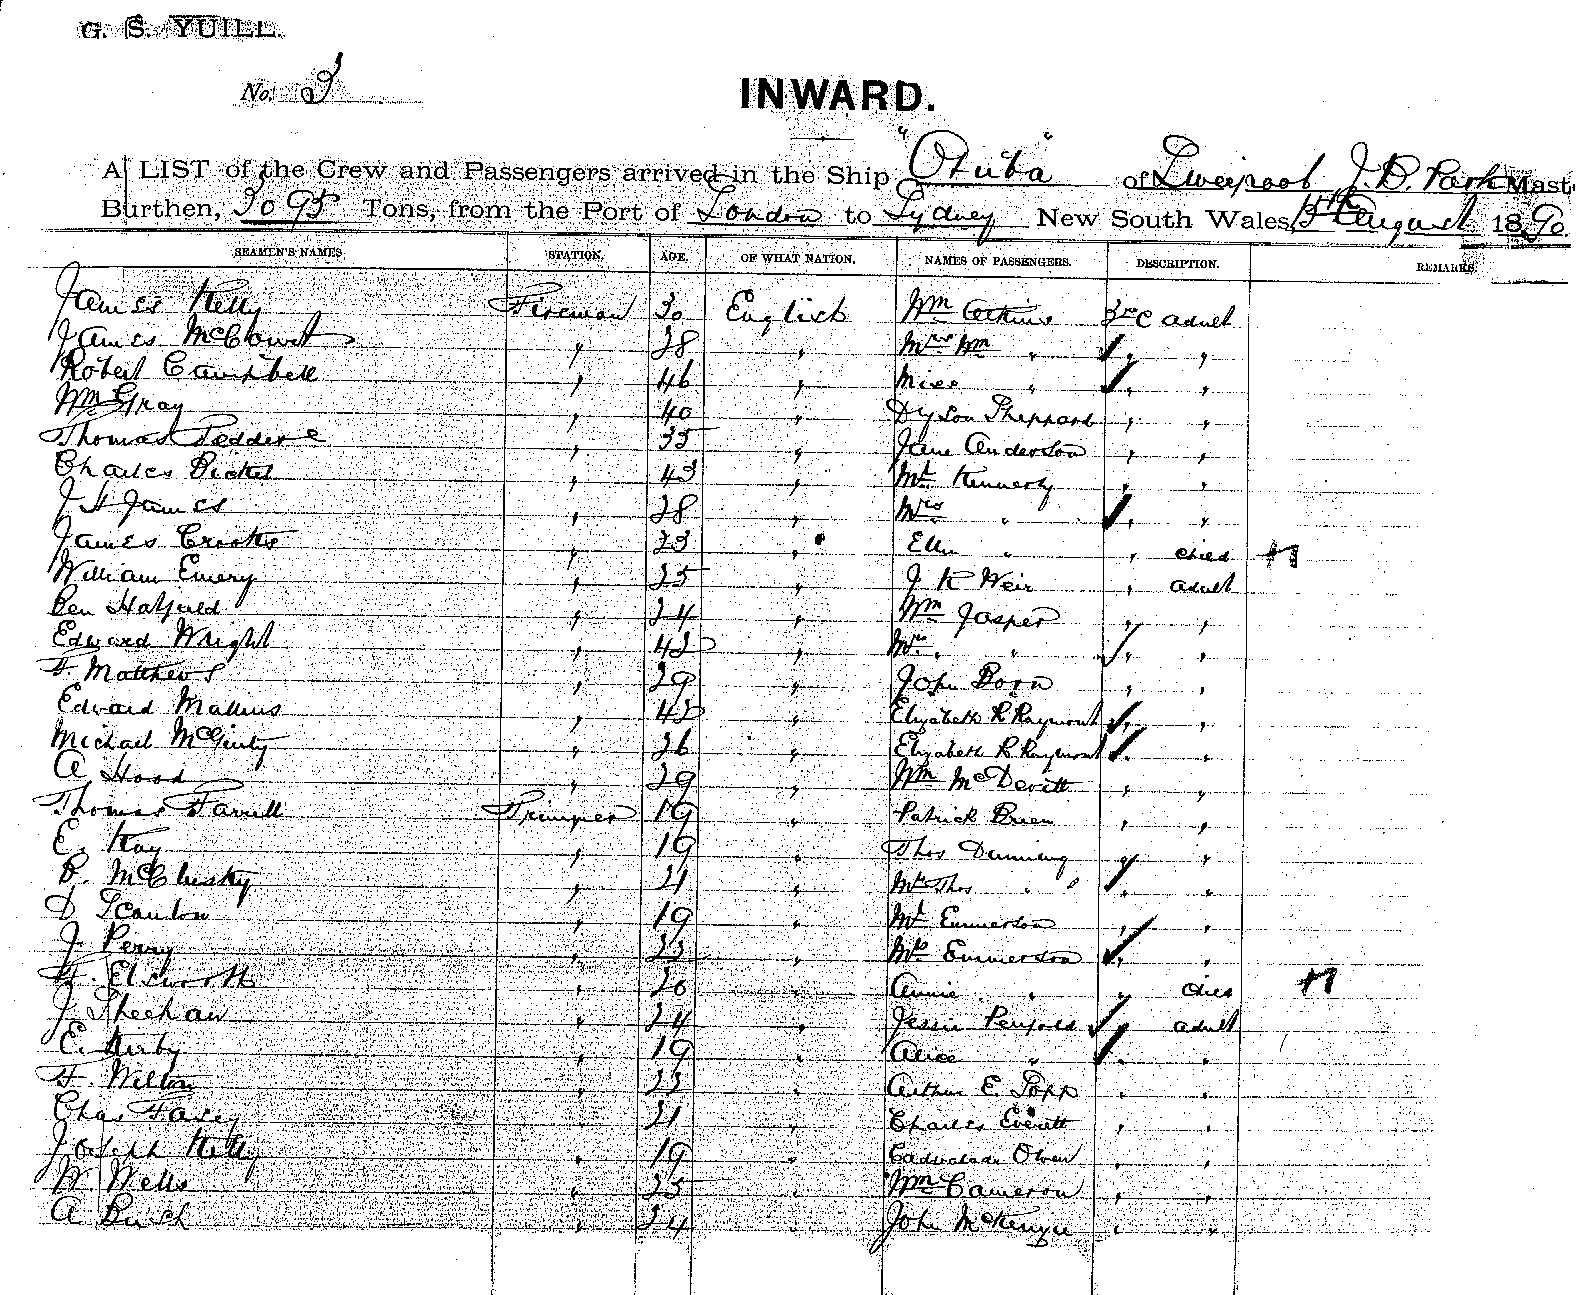 G. S. YUILL.
No. 3
INWARD.
A LIST of the Crew and Passengers arrived in the Ship "Otuba" of Liverpool J. D. Park Mast
Burthen, 3095 Tons, from the Port of London to Sydney New South Wales, August 1890
SEAMEN'S NAMES. STATION. AGE. OF WHAT NATION. NAMES OF PASSENGERS. DESCRIPTION. REMARKS.
James Kelly Fireman 30 English Wm Atkins 3rd C adult
James McCourt " 28 " Mrs Wm " " "
Robert Campbell " 46 " Miss " " "
Wm Gray " 40 " Dyson Sheppard " "
Thomas " 35 " Jane Anderson " "
Charles " 43 " Mr Kennerly " "
J H James " 28 " Mrs " " "
James Crooks " 23 " Ellen " " child
William Emery " 25 " J K Weir " adult
Ben Hatfield " 24 " Wm Jasper " "
Edward Wright " 42 " Mrs " " "
F. Matthews " 29 " John Born " "
Edward Mallins " 42 " Elizabeth R Raymont " "
Michael McGinty " 26 " Elizabeth R Raymont " "
A Hood " 29 " Wm McDevitt " "
Thomas Farrell Trimmer 19 " Patrick Brien " "
E. Kay " 19 " Thos Dunning " "
B. McClusky " 21 " Mrs Thos " " "
D Scanlon " 19 " Mr Emmerson " "
J Perry " 23 " Mrs Emmerson " "
Elsworth " 20 " Annie " "
J Sheehan " 24 " Jessie Penfold " adult
E. Kirby " 19 " Alice " " "
F. Wilton " 23 " Arthur E. Popp " "
Chas " 21 " Charles Everett " "
Joseph Kelly " 19 " Cadwalader Owen " "
W. Wells " 25 " Wm Cameron " "
A Burch " 24 " John McKenzie " "